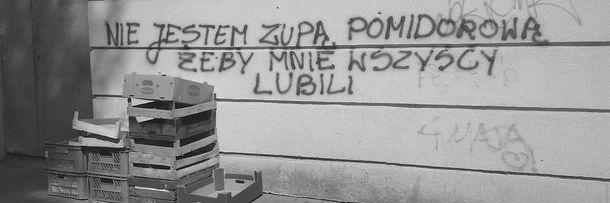 NIE JESTEM ZUPĄ POMIDOROWĄ
ŻEBY MNIE WSZYSCY
LUBILI
4 MAJA